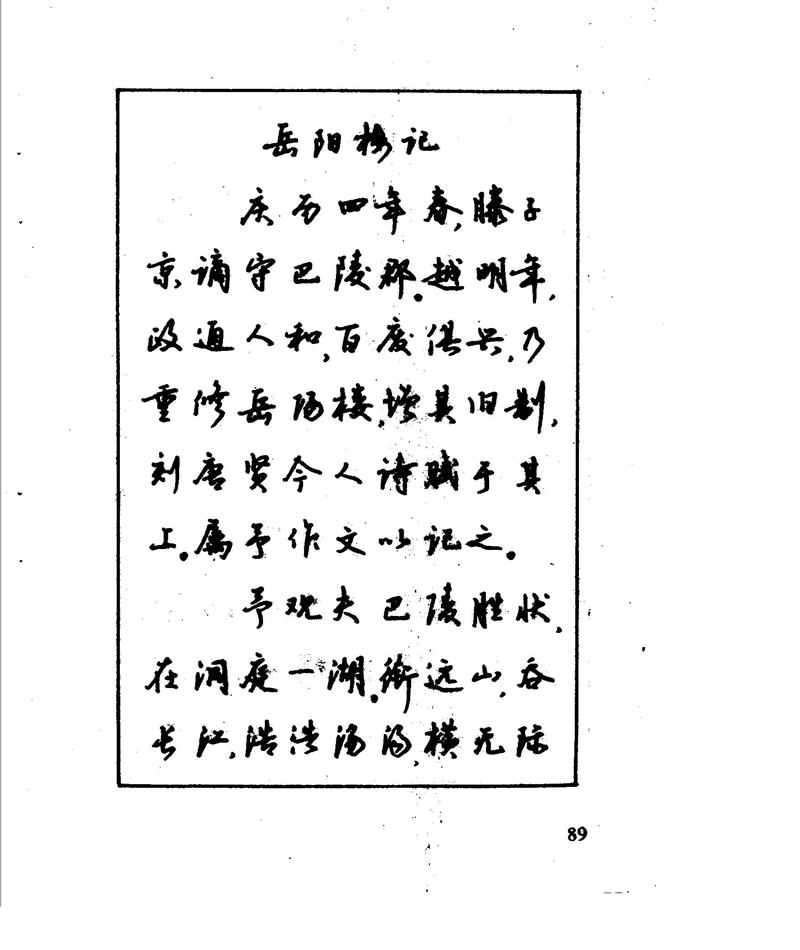 岳阳楼记
庆历四年春,滕子
京谪守巴陵郡。越明年,
政通人和,百度俱兴,乃
重修岳阳楼,增其旧制,
刻唐贤今人诗赋于其
上。属予作文以记之。
予观夫巴陵胜状,
在洞庭一湖。衔远山,吞
长江,浩浩汤汤,横无际
89